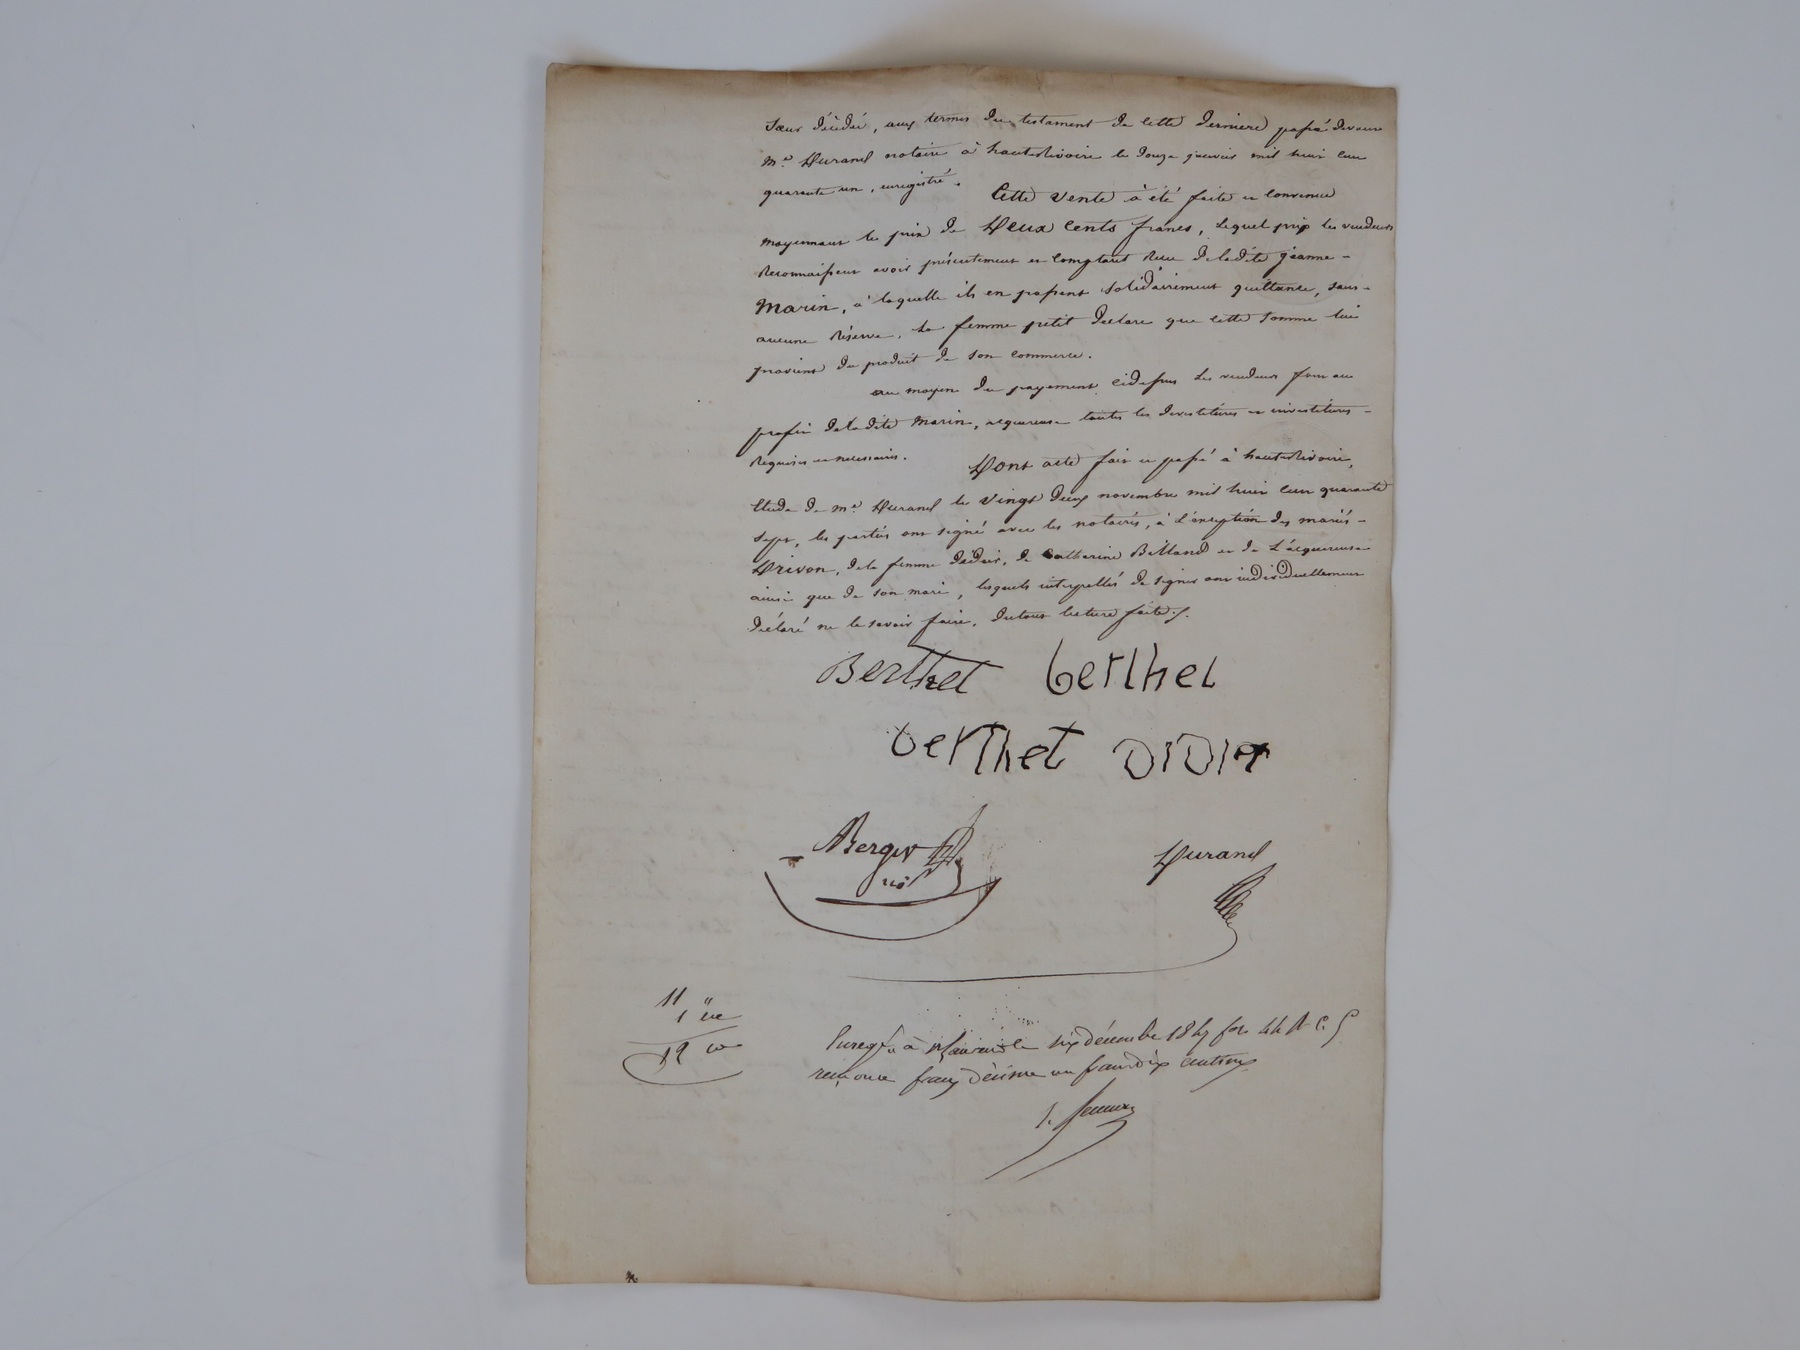 Sœur décédée, aux termes du testament de cette derniere passé devant
Me Durand notaire à hauterivoire le douze janvier mil huit cent
quarante un, enregistré. Cette vente à été faite et convenue
moyennant le prix de Deux cents francs, lequel prix les vendeurs
Reconnaissent avoir présentement et comptant Reçu de ladite jeanne-
Marin, à laquelle ils en passent solidairement quittance, sans-
aucune Réserve. La femme petit Déclare que cette somme lui
provient du produit de son commerce.
au moyen du payement cidessus les vendeurs font au
profit de ladite Marin, acquereuse toutes les devestitures et investitures-
Requises et necessaires. Dont acte fait et passé à hauterivoire,
Etude de me Durand le vingt deux novembre mil huit cent quarante
sept, les parties ont signé avec les notaires, à l'exception des mariés-
Drivon, de la femme Didier, de Catherine Billand et de L'acquereuse
ainsi que de son mari, lesquels interpellés de signer ont individuellement
Déclaré ne le savoir faire. Du tout lecture faite./.
Berthet berthet
berthet DIDIR
Berger Durand
nre
11 "
1 10
12 10
Enregtré à le six décembre 1847 fo 44 R C. 5
reçu onze francs décime un franc dix centimes